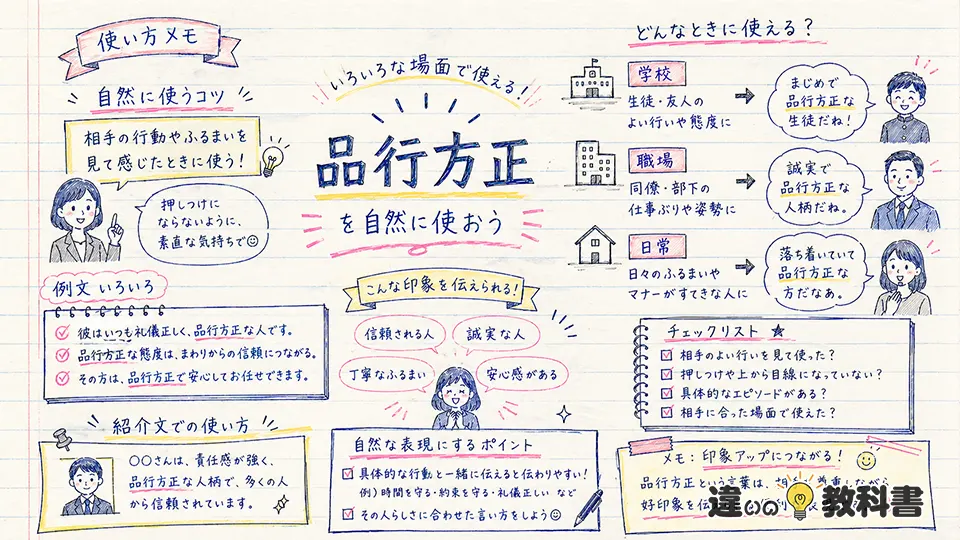 使い方メモ
自然に使うコツ
相手の行動やふるまいを
見て感じたときに使う!
押しつけに
ならないように、
素直な気持ちで☺
例文 いろいろ
彼はいつも礼儀正しく、品行方正な人です。
品行方正な態度は、まわりからの信頼につながる。
その方は、品行方正で安心してお任せできます。
紹介文での使い方
〇〇さんは、責任感が強く、
品行方正な人柄で、多くの人
から信頼されています。
いろいろな場面で使える!
品行方正
を自然に使おう
こんな印象を伝えられる!
信頼される人
誠実な人
丁寧なふるまい
安心感がある
自然な表現にするポイント
具体的な行動と一緒に伝えると伝わりやすい!
例)時間を守る・約束を守る・礼儀正しい など
その人らしさに合わせた言い方をしよう☺
どんなときに使える?
学校
生徒・友人の
よい行いや態度に
まじめで
品行方正な
生徒だね!
職場
同僚・部下の
仕事ぶりや姿勢に
誠実で
品行方正な
人柄だね。
日常
日々のふるまいや
マナーがすてきな人に
落ち着いていて
品行方正な
方だなあ。
チェックリスト ★
相手のよい行いを見て使った?
押しつけや上から目線になっていない?
具体的なエピソードがある?
相手に合った場面で使えた?
メモ:印象アップにつながる!
品行方正という言葉は、
好印象を伝
違いの教科書